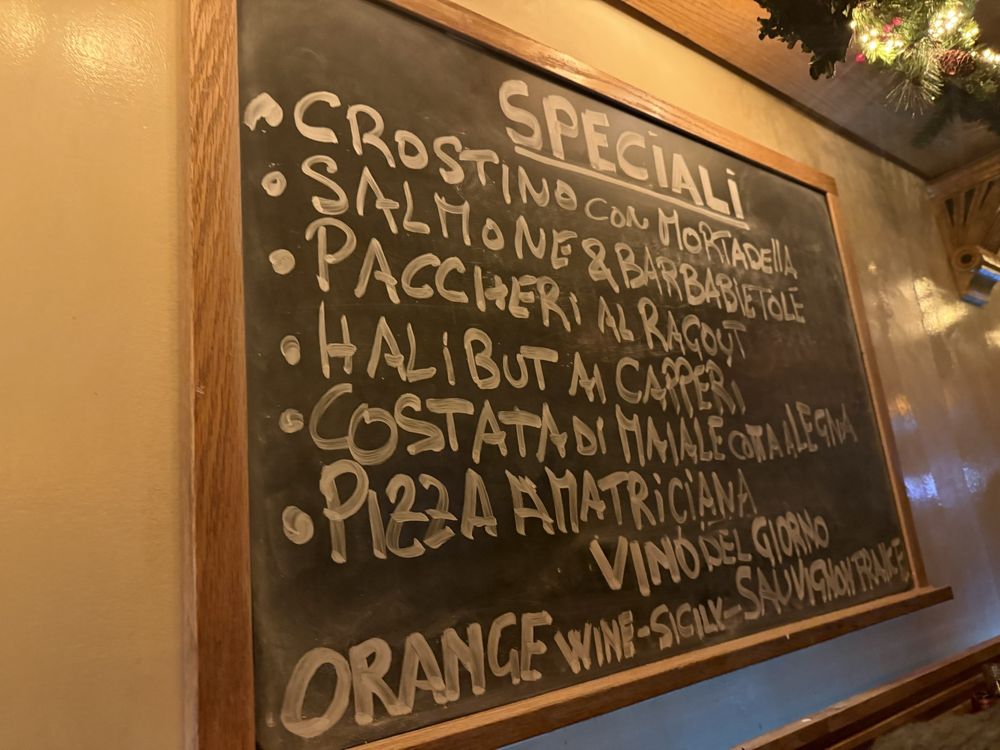 SPECiALi
• CROSTiNO CON MORTADEllA
• SALMONE & BARBABiETOLE
• PACCHERi AL RAGOUT
• HALiBUT Ai CAPPERi
• COSTATA Di MAiALE COTTA A LEGNA
• PIZZA AMATRiCiANA
ViNO DEL GIORNO
ORANGE WINE - SICILY - SAUVIGNON FRANCE